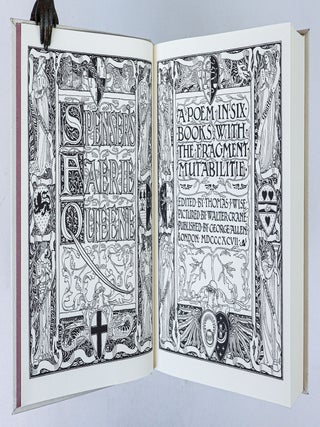 SPENSER'S
FAERIE
QUEENE
A POEM IN SIX
BOOKS; WITH
THE FRAGMENT
MUTABILITIE
EDITED BY THOMAS J. WISE
PICTURED BY WALTER CRANE
PUBLISHED BY GEORGE ALLEN
LONDON: MDCCCXCVII